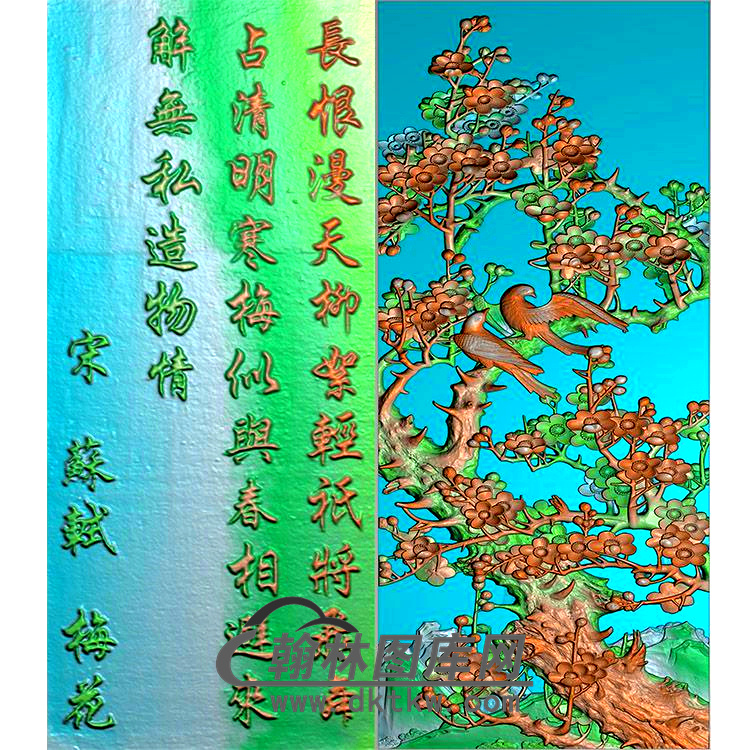 長恨漫天柳絮輕祇將飛舞
占清明寒梅似與春相避來
解無私造物情
宋 蘇軾 梅花
翰林图库网
www.dktkw.com